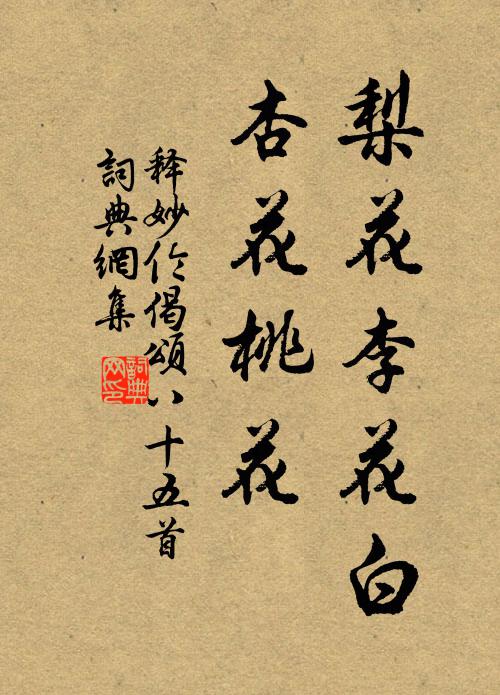 梨花李花白
杏花桃花
释妙伦偈頌八十五首
詞典網集
詞典
网印